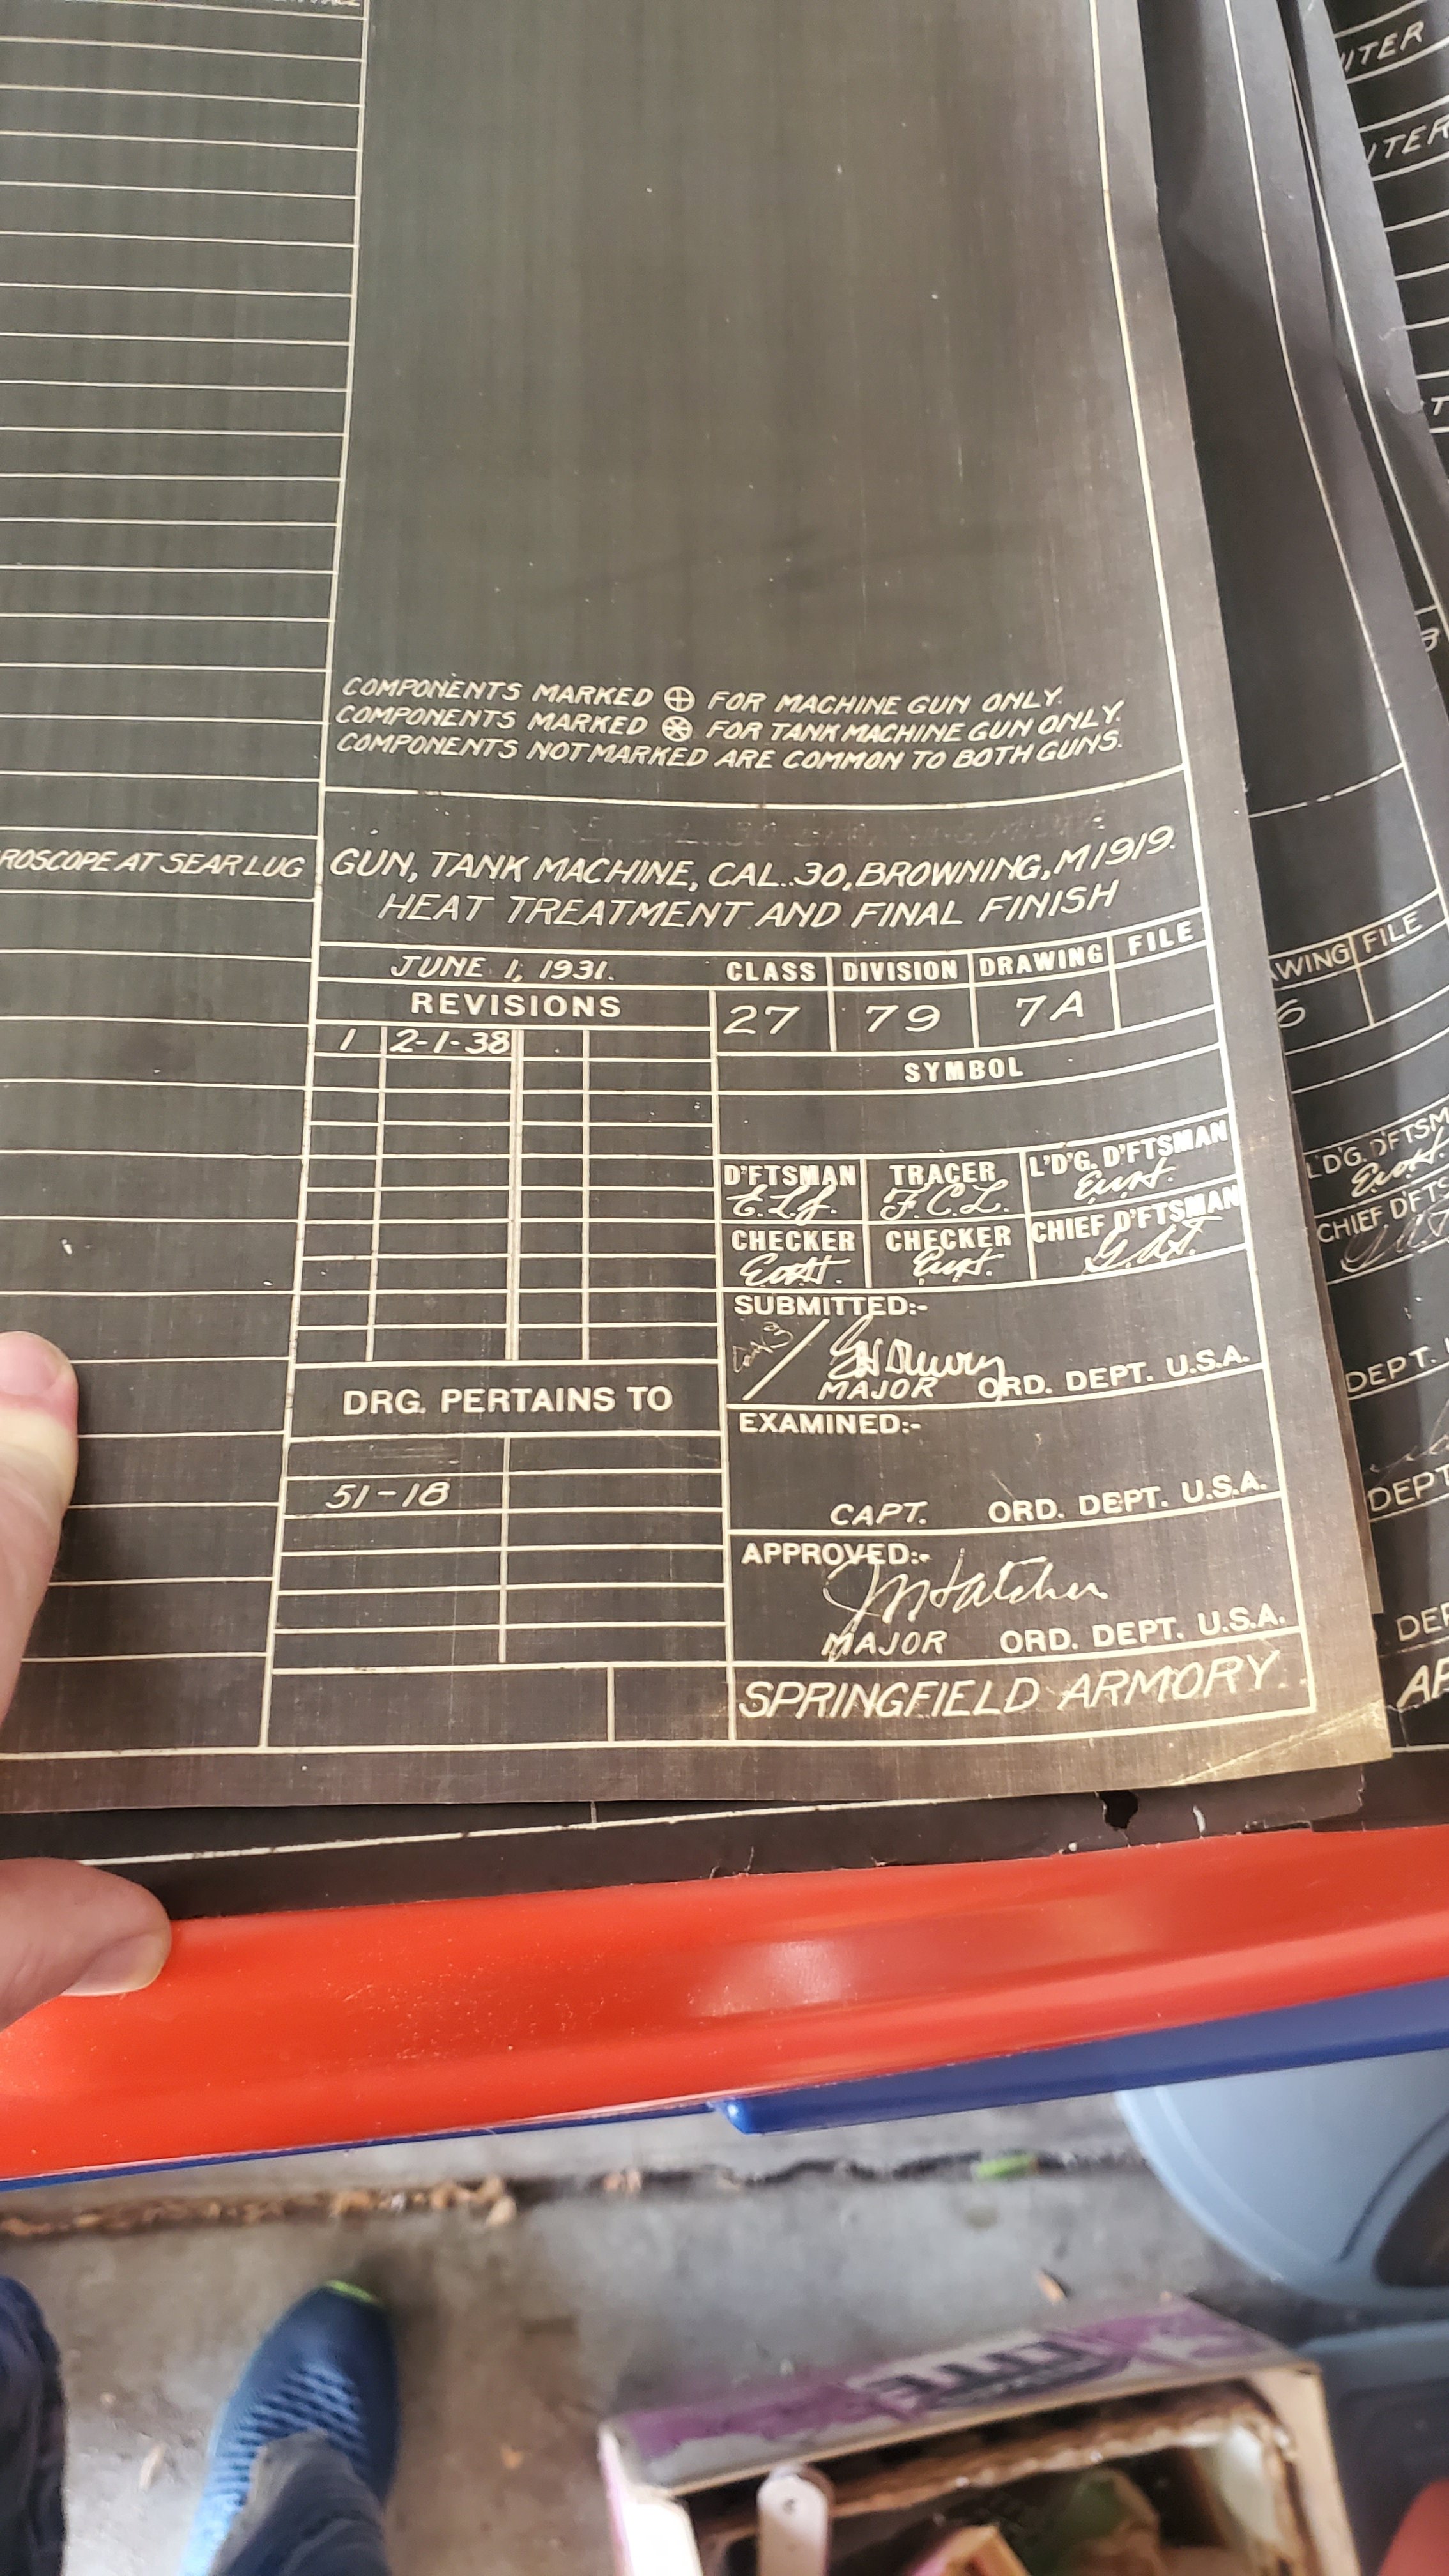 COMPONENTS MARKED ⊕ FOR MACHINE GUN ONLY.
COMPONENTS MARKED ⊛ FOR TANK MACHINE GUN ONLY.
COMPONENTS NOT MARKED ARE COMMON TO BOTH GUNS.
ROSCOPE AT SEAR LUG
GUN, TANK MACHINE, CAL..30, BROWNING, M1919.
HEAT TREATMENT AND FINAL FINISH
JUNE 1, 1931.
CLASS DIVISION DRAWING FILE
27 79 7A
REVISIONS
1 2-1-38
SYMBOL
D'FTSMAN TRACER L'D'G. D'FTSMAN
F.C.L.
CHECKER CHECKER CHIEF D'FTSMAN
SUBMITTED:-
MAJOR ORD. DEPT. U.S.A.
DRG. PERTAINS TO
51-18
EXAMINED:-
CAPT. ORD. DEPT. U.S.A.
APPROVED:-
JMHatcher
MAJOR ORD. DEPT. U.S.A.
SPRINGFIELD ARMORY.
UTER
UTER
WING FILE
6
L'D'G. D'FTSM
CHIEF D'FTS
DEPT.
DEPT
DEP
AR